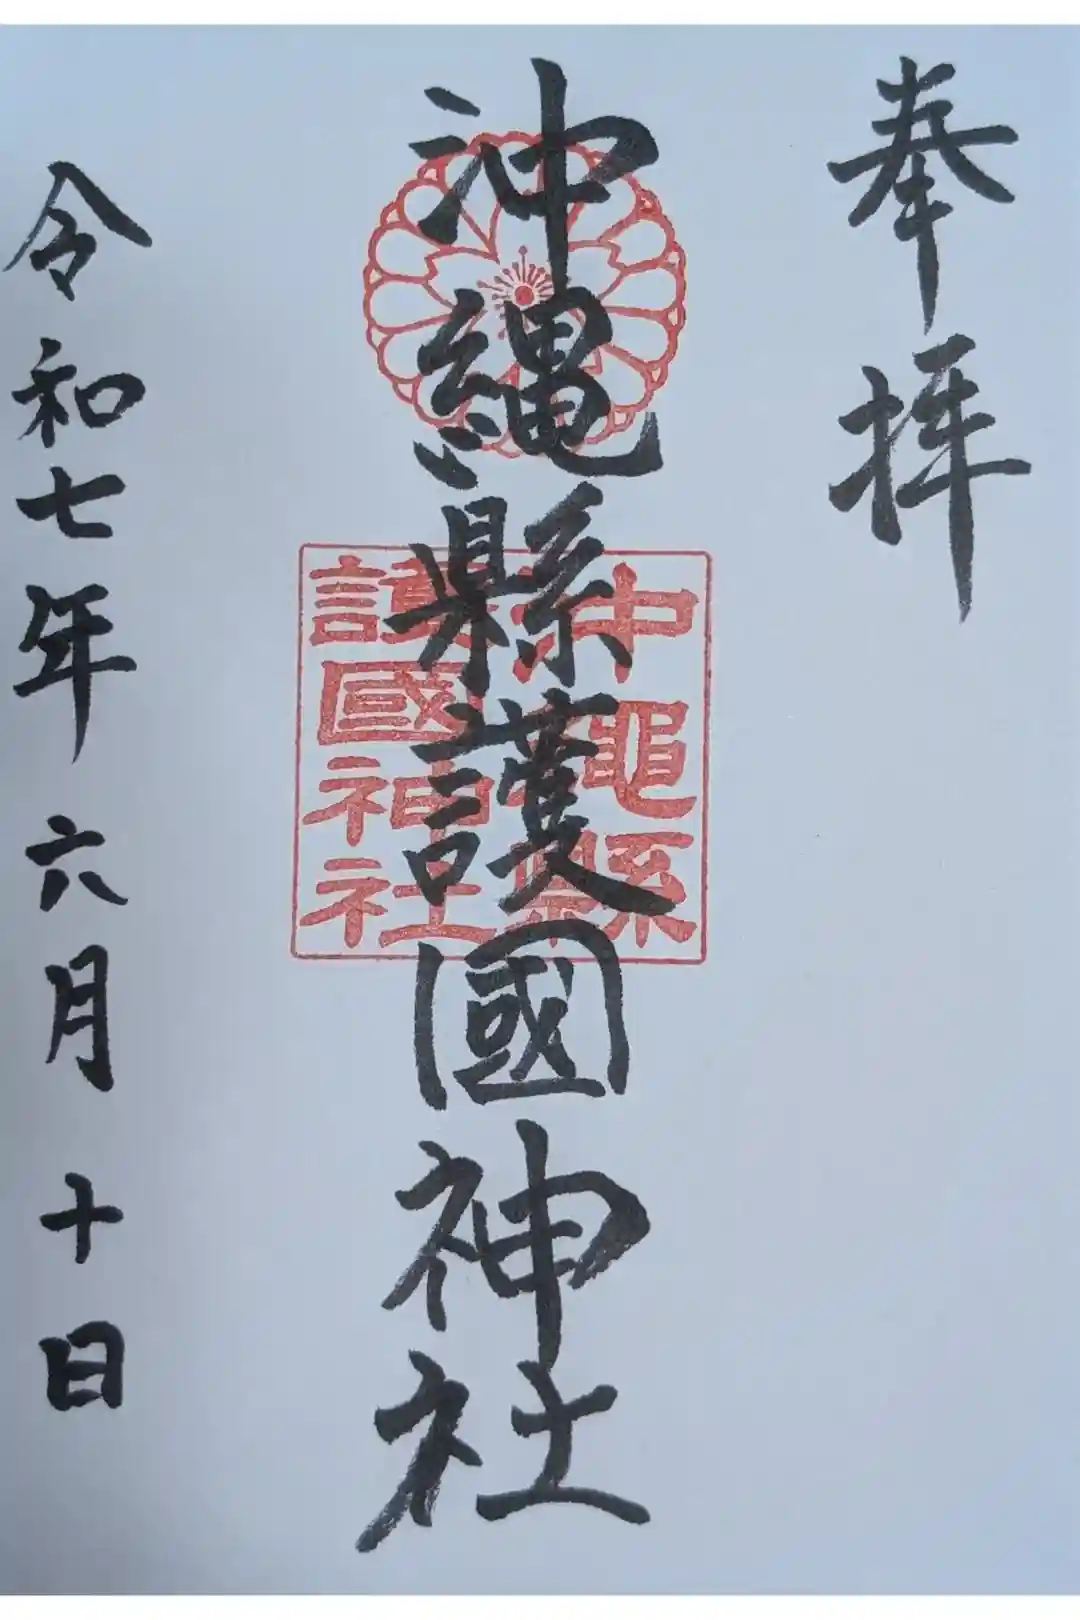 奉拝
沖縄縣護國神社
沖繩縣
護國神社
令和七年六月十日